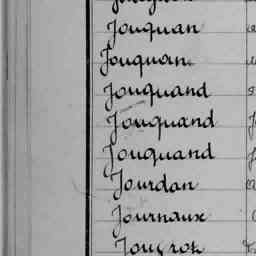 Jouquan
Jouquan
Jouquand
Jouquand
Jouquand
Jourdan
Journaux